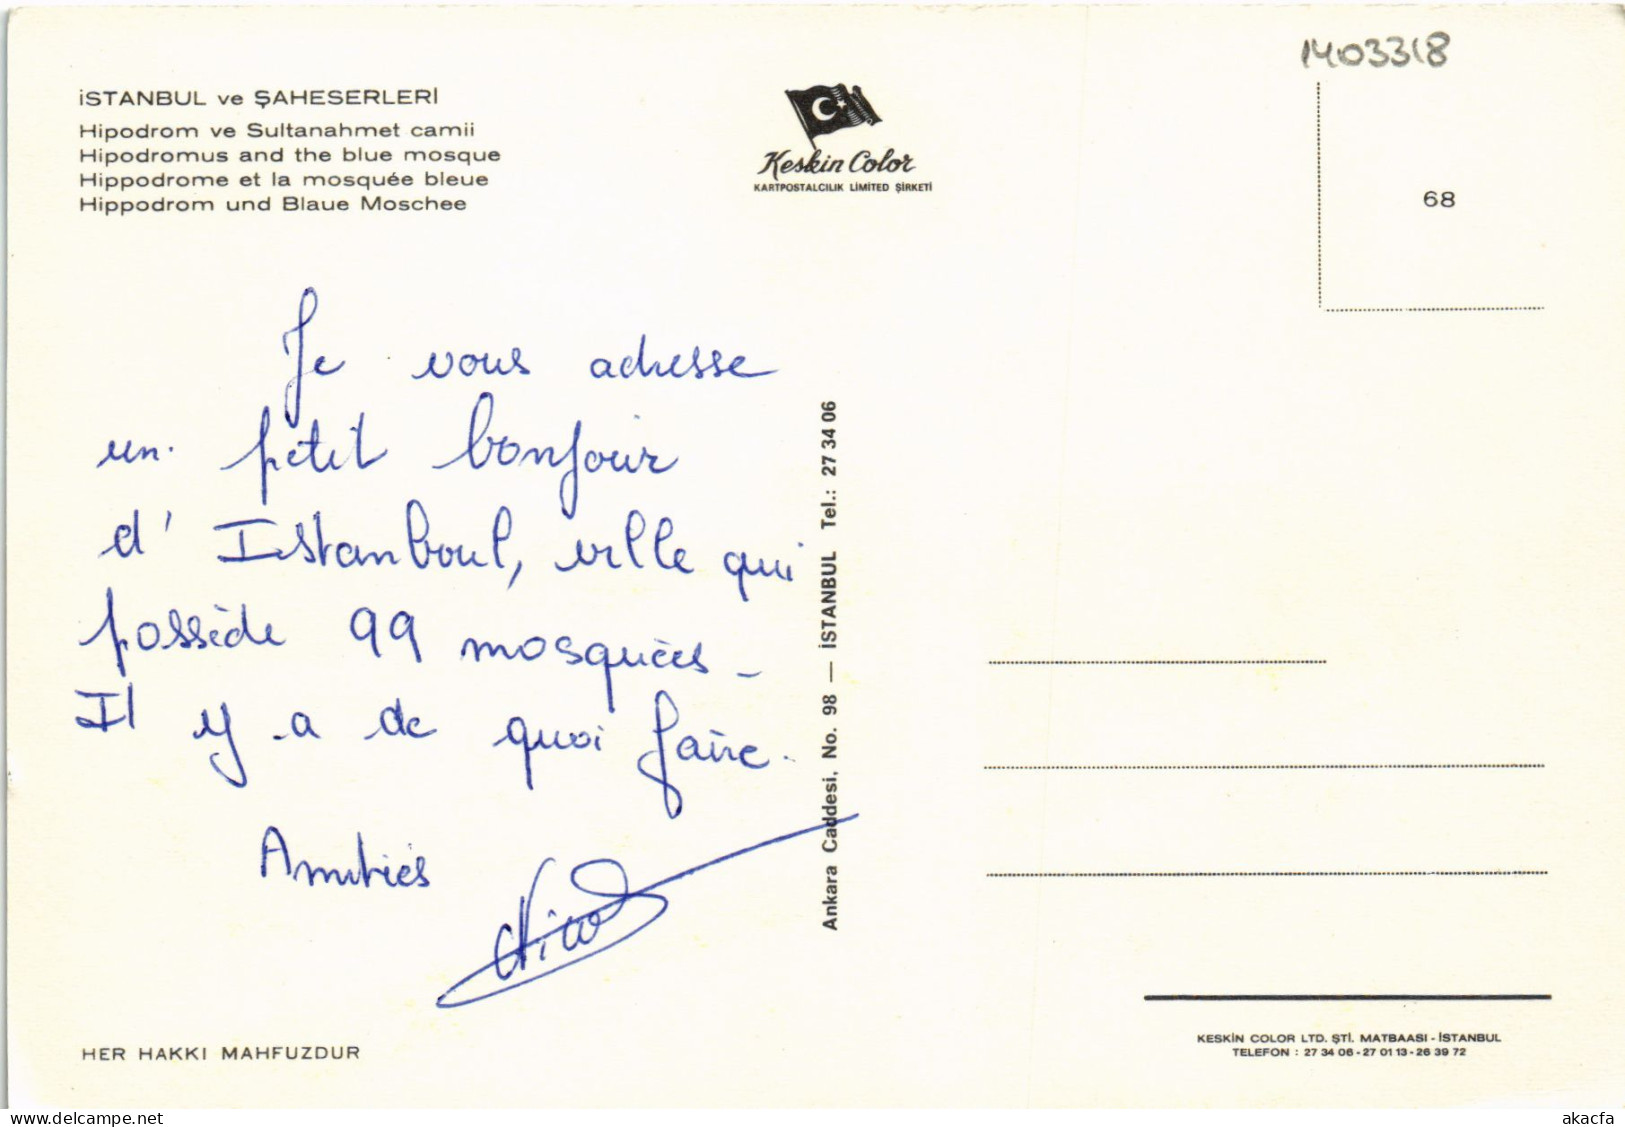 1403318
İSTANBUL ve ŞAHESERLERİ
Hipodrom ve Sultanahmet camii
Hipodromus and the blue mosque
Hippodrome et la mosquée bleue
Hippodrom und Blaue Moschee
Keskin Color
KARTPOSTALCILIK LİMİTED ŞİRKETİ
68
Je vous adresse
un petit bonjour
d'Istanboul, ville qui
possède 99 mosquées -
Il y a de quoi faire.
Amitiés
Ankara Caddesi, No. 98 — İSTANBUL Tel.: 27 34 06
HER HAKKI MAHFUZDUR
KESKİN COLOR LTD. ŞTİ. MATBAASI - İSTANBUL
TELEFON : 27 34 06 - 27 01 13 - 26 39 72
www.delcampe.net
akacfa